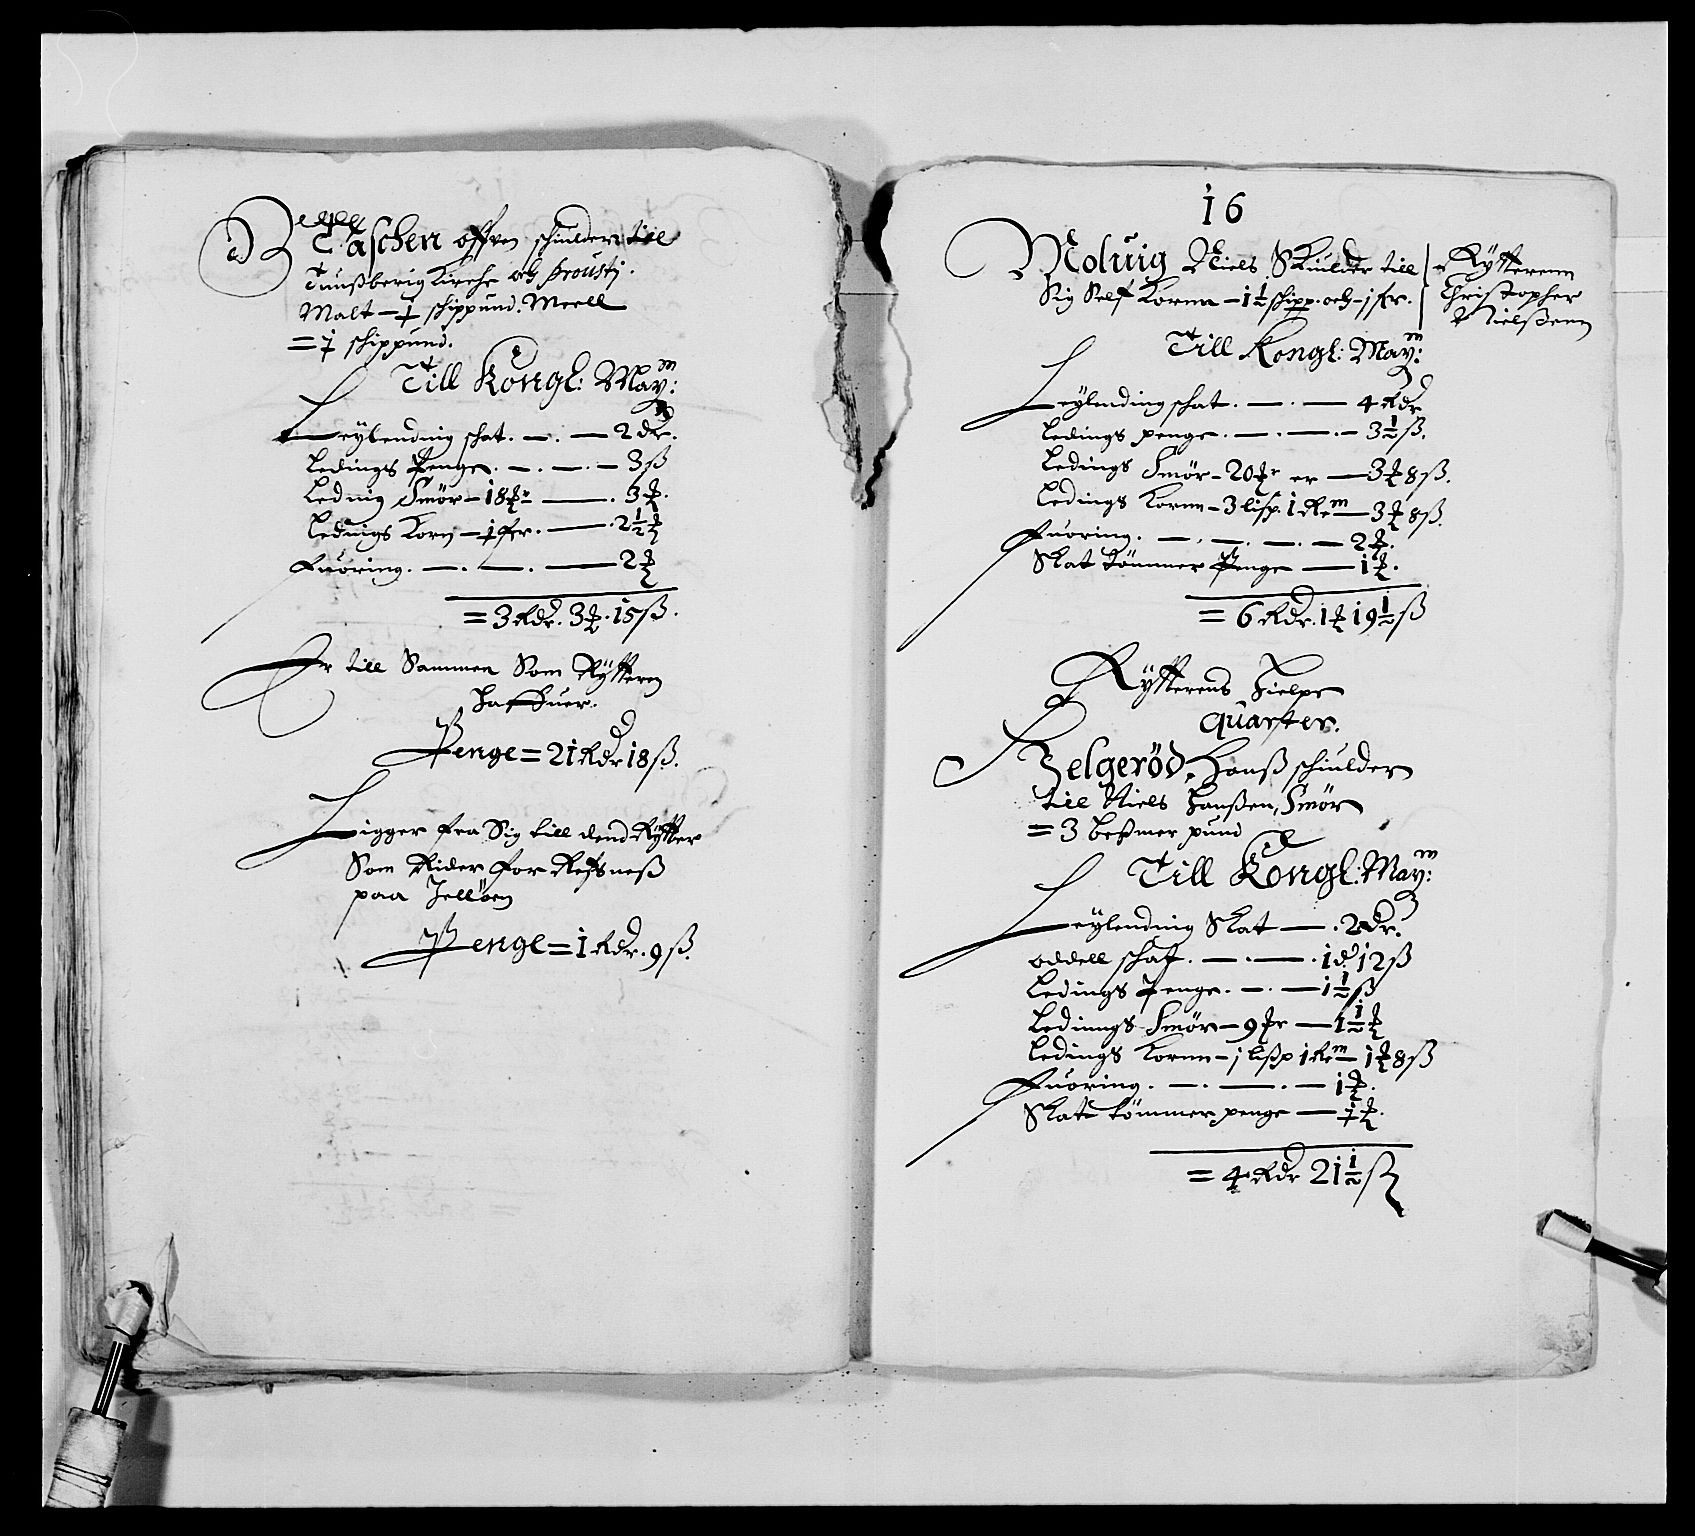 Taschen offven schiulder till
Tunßberig Kirche och Proustj.
Malt – 1 schippund. Meell
= 1 schippund.
Till Kongl: May:
Leylending schat. — . — 2 dr.
Ledings Penge. — . — . — 3 ß
Leding Smör – 18 — 3
Ledings Korn – 1 fr. — 2 1/2
Fuoring. — . — . — 2
= 3 Rdr. 3 . 15 ß.
Er till Sammen Som Rytteren
Haffuer.
Penge = 21 Rdr 18 ß.
Ligger fra Sig till dend Rytter
Som Rider for Refsneß
paa Jelløen
Penge = 1 Rdr. 9 ß.
16
Moluig Niels Skiulder till
Sig Self Kornn – 1 1/2 schipp. och – j fr.
Rytterenn
Christopher
Nielßenn
Till Kongl: May:
Leylending schat. — . — 4 Rdr
Ledings penge. — . — . – 3 1/2 ß.
Ledings Smör – 20 er — 3 8 ß.
Ledings Kornn – 3 lisp. 1 Rem — 3 8 ß.
Fuoring. — . — . — . — 2
Skat tömmer Penge — 1
= 6 Rdr. 1 19 1/2 ß
Rytterens Hielpe
Quarter.
Helgeröd, Hanß schiulder
till Niels Hanßen, Smör
= 3 beßmer pund
Till Kongl: May:
Leylending Skat — . 2 dr.
oddell schat. — . — . 1 d 12 ß
Ledings Penge. — . — 1 1/2 ß
Ledinngs Smör – 9 — 1 1/2
Ledings Kornn – j lißp 1 Rem — 1 8 ß
Fuoring. — . — . — 1
Skatt tömmer penge — 1
= 4 Rdr 21 1/2 ß